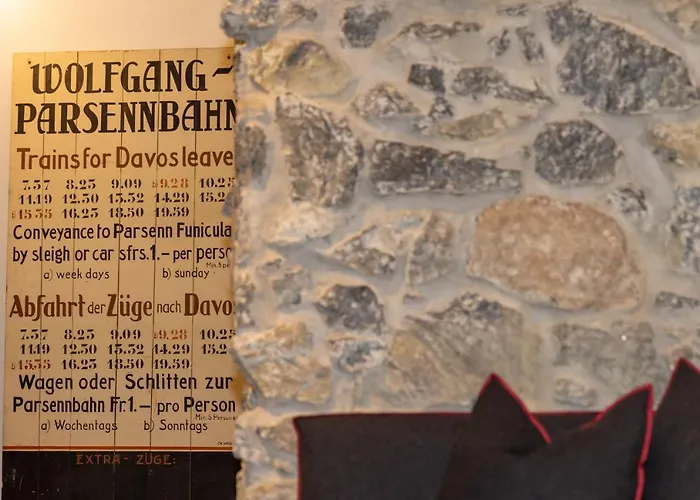 WOLFGANG-
PARSENNBAHN
Trains for Davos leave
7.57 8.25 9.09 b9.28 10.25
11.19 12.50 13.52 14.29 15.2
b15.55 16.25 18.50 19.59
Conveyance to Parsenn Funicula
by sleigh or car sfrs.1.- per perso
Min.5 p
a) week days b) sunday
Abfahrt der Züge nach Davos
7.57 8.25 9.09 b9.28 10.25
11.19 12.50 13.52 14.29 15.2
b15.55 16.25 18.50 19.59
Wagen oder Schlitten zur
Parsennbahn Fr.1.- pro Person
Min. 5 Persone
a) Wochentags b) Sonntags
EXTRA-ZÜGE: